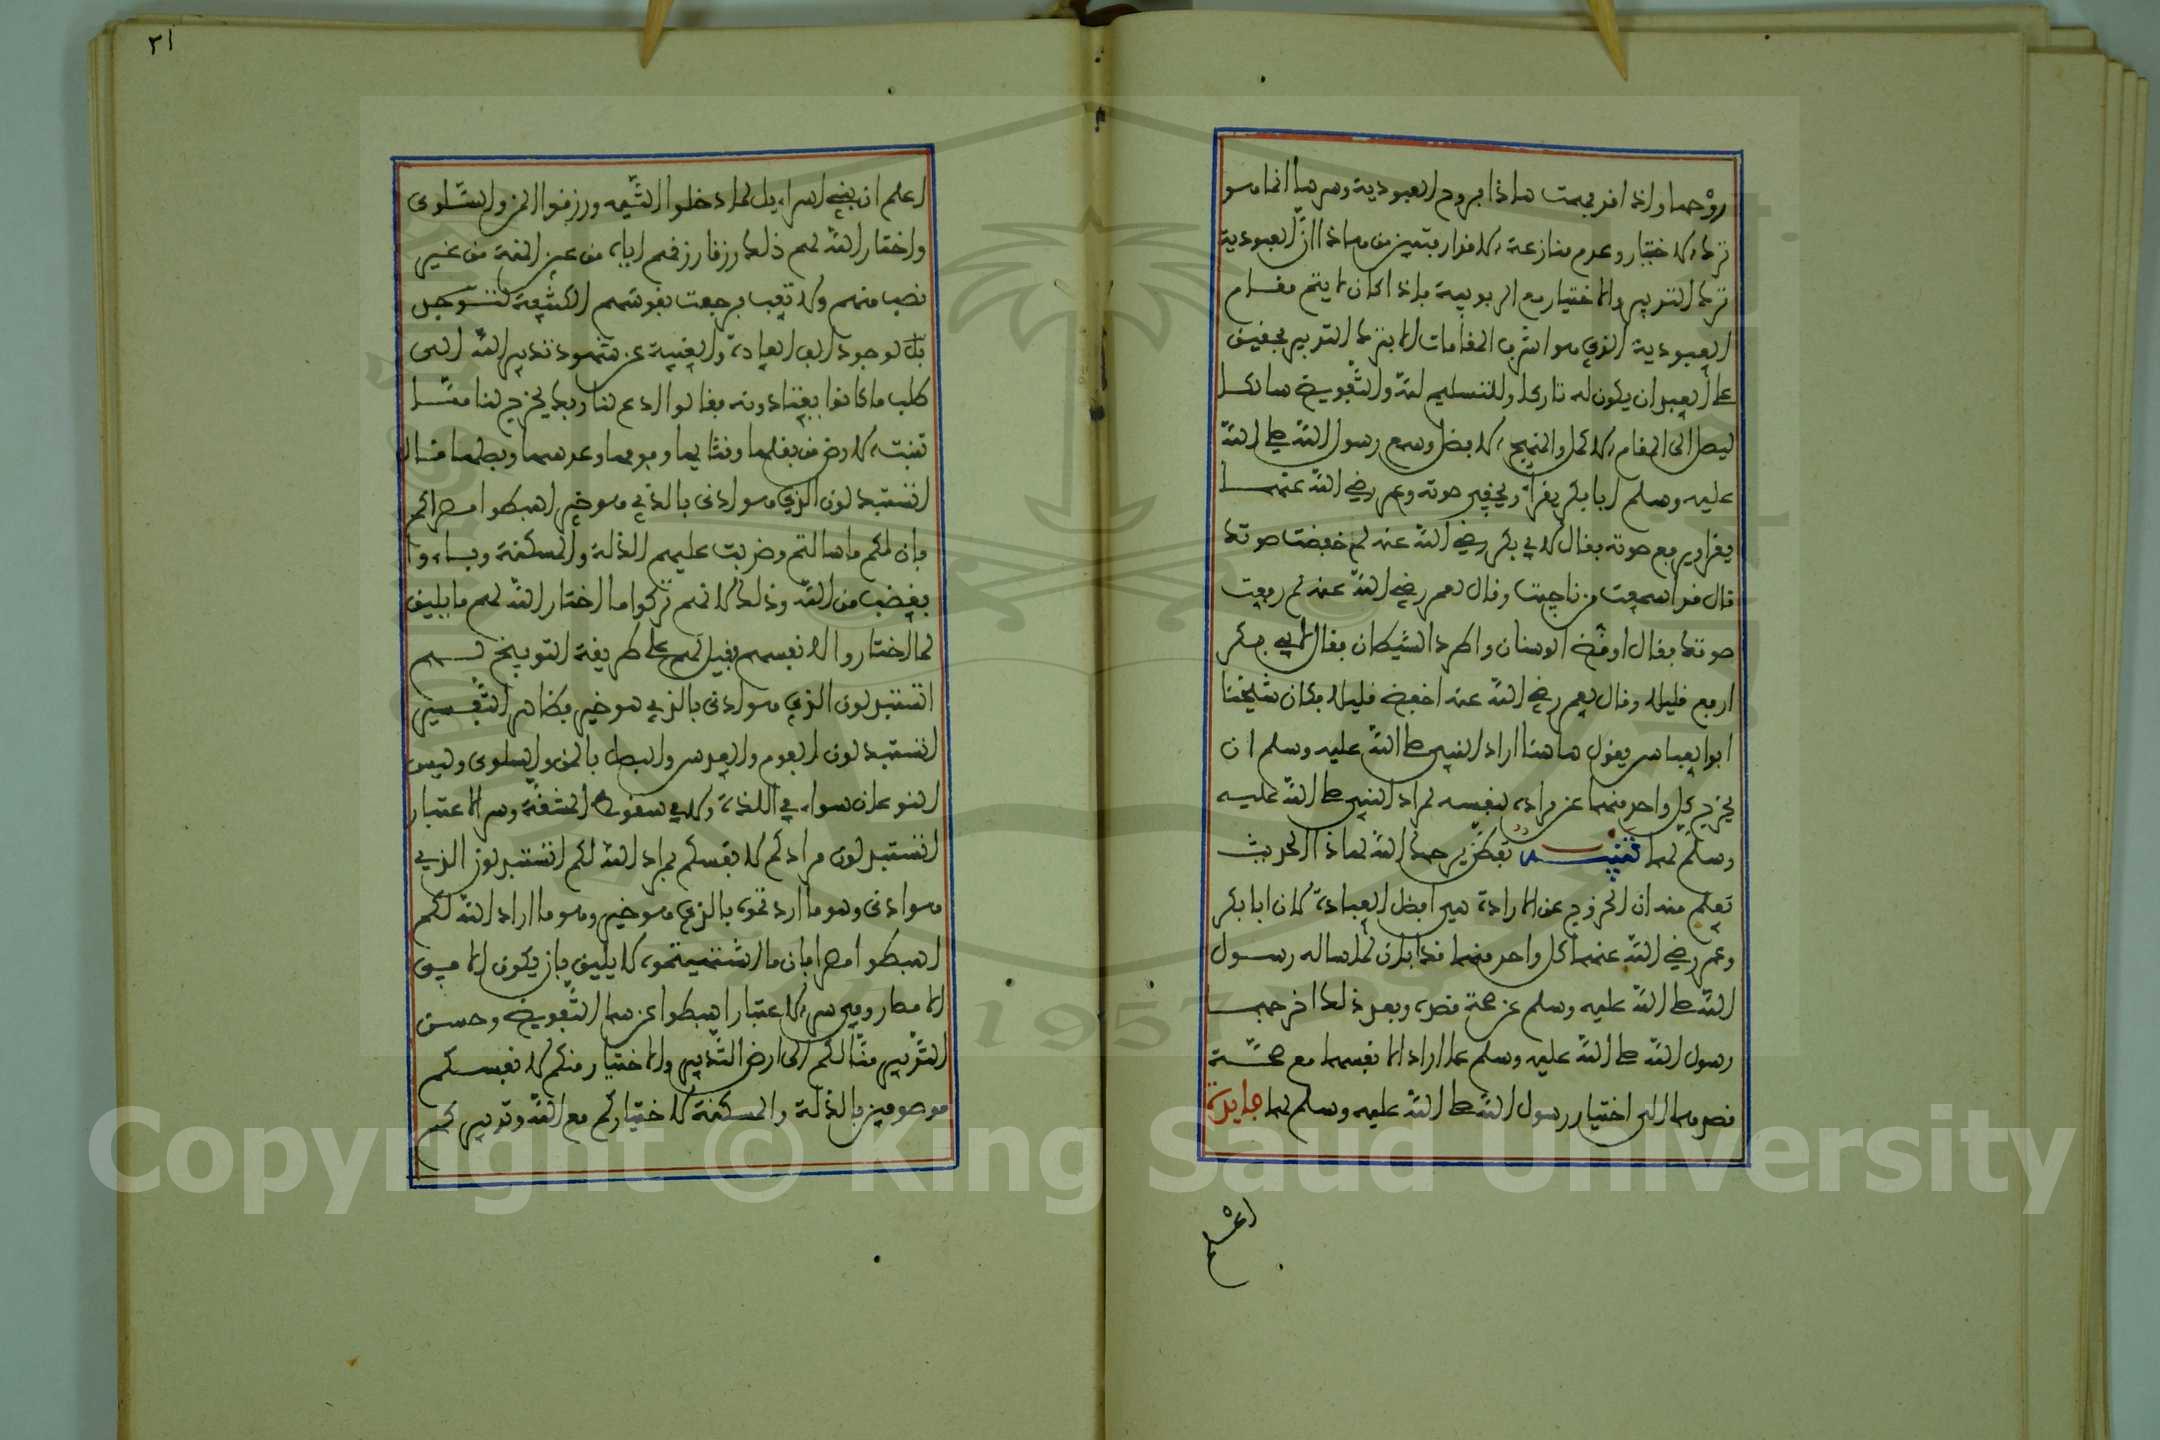 روحها واذا قد فهمت هاذا فروح العبودية وسرها انما هو
ترك الاختيار وعدم منازعة الاقدار فتبين من هاذا ان العبودية
ترك التدبير والاختيار مع الربوبية فاذا كان لا يتم مقام
العبودية الذي هو اشرف المقامات الا بترك التدبير فحقيق
على العبد ان يكون له تاركا وللتسليم لله والتفويض سالكا
ليصل الى المقام الاكمل والمنهج الافضل وسمع رسول الله صلى الله
عليه وسلم ابا بكر يقرأ ويخفي صوته وعمر رضي الله عنهما
يقرا ويرفع صوته فقال لابي بكر رضي الله عنه لم خفضت صوتك
قال قد اسمعت من ناجيت وقال لعمر رضي الله عنه لم رفعت
صوتك فقال اوقظ الوسنان واطرد الشيطان فقال لابي بكر
ارفع قليلا وقال لعمر رضي الله عنه اخفض قليلا فكان شيخنا
ابو العباس يقول هاهنا اراد النبي صلى الله عليه وسلم ان
يخرج كل واحد منهما عن مراده لنفسه لمراد النبي صلى الله عليه
وسلم لهما تنبيه تفطن يرحمك الله لهاذا الحديث
تعلم منه ان الخروج عن الارادة هي افضل العبادة لان ابا بكر
وعمر رضي الله عنهما كل واحد منهما قد ابان لما ساله رسول
الله صلى الله عليه وسلم عن صحة قصده وبعد ذلك اخرجهما
رسول الله صلى الله عليه وسلم عما ارادا لانفسهما مع صحة
قصدهما الى اختيار رسول الله صلى الله عليه وسلم لهما فايدة
اعلم
٢١
اعلم ان بني اسراءيل لما دخلوا التيه ورزقوا المن والسلوى
واختار الله لهم ذلك رزقا رزقهم اياه من عين المنة من غير
نصب منهم ولا تعب فرجعت نفوسهم الكثيفة
لوجود الف العادة والغيبة عن شهود تدبير الله الى
طلب ما كانوا يعتادونه فقالوا ادع لنا ربك يخرج لنا مما
تنبت الارض من بقلها وقثايها وفومها وعدسها وبصلها قال
اتستبدلون الذي هو ادنى بالذي هو خير اهبطوا مصرا
فان لكم ما سالتم وضربت عليهم الذلة والمسكنة وباءوا
بغضب من الله وذلك لانهم تركوا ما اختار الله لهم مايليق
لما اختاروا لانفسهم فقيل لهم على طريقة التوبيخ لهم
اتستبدلون الذي هو ادنى بالذي هو خير فظاهر التفسير
اتستبدلون الفوم والعدس والبصل بالمن والسلوى وليس
النوعان سواء في اللذة ولا في سقوط المشقة وسر الاعتبار
اتستبدلون مرادكم لانفسكم بمراد الله لكم اتستبدلون الذي
هو ادنى وهو ما اردتموه بالذي هو خير وهو ما اراد الله لكم
اهبطوا مصرا فان ما اشتهيتموه لا يليق بان يكون الا في
الامصار وفي سر الاعتبار اهبطوا عن سما التفويض وحسن
التدبير منا لكم الى ارض التدبير والاختيار منكم لانفسكم
موصوفين بالذلة والمسكنة لاختياركم مع الله وتدبيركم